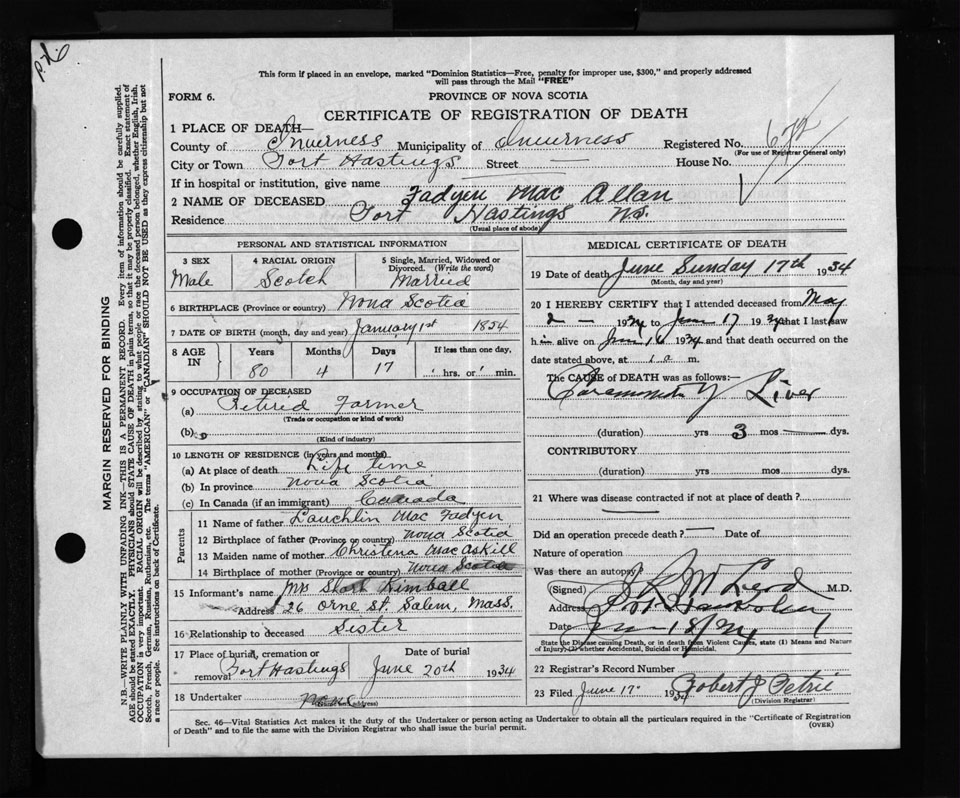 This form if placed in an envelope, marked "Dominion Statistics—Free, penalty for improper use, $300," and properly addressed
will pass through the Mail "FREE"
FORM 6.
PROVINCE OF NOVA SCOTIA
CERTIFICATE OF REGISTRATION OF DEATH
1 PLACE OF DEATH—
County of Inverness Municipality of Inverness Registered No. 672
(For use of Registrar General only)
City or Town Port Hastings Street — House No.
If in hospital or institution, give name
2 NAME OF DECEASED Fadyen Mac Allan
Residence Port Hastings NS.
(Usual place of abode)
PERSONAL AND STATISTICAL INFORMATION
3 SEX 4 RACIAL ORIGIN 5 Single, Married, Widowed or Divorced. (Write the word)
Male Scotch Married
6 BIRTHPLACE (Province or country) Nova Scotia
7 DATE OF BIRTH (month, day and year) January 1st 1854
8 AGE IN Years Months Days If less than one day,
80 4 17 hrs. or min.
9 OCCUPATION OF DECEASED
(a) Retired Farmer
(Trade or occupation or kind of work)
(b)
(Kind of industry)
10 LENGTH OF RESIDENCE (in years and months)
(a) At place of death Life time
(b) In province Nova Scotia
(c) In Canada (if an immigrant) Canada
Parents
11 Name of father Lauchlin Mac Fadyen
12 Birthplace of father (Province or country) Nova Scotia
13 Maiden name of mother Christena MacAskill
14 Birthplace of mother (Province or country) Nova Scotia
15 Informant's name Mrs Kimball
Address 26 Orne St. Salem, Mass,
16 Relationship to deceased Sister
17 Place of burial, cremation or removal Port Hastings Date of burial June 20th 1934
18 Undertaker none
MEDICAL CERTIFICATE OF DEATH
19 Date of death June Sunday 17th 1934
(Month, day and year)
20 I HEREBY CERTIFY that I attended deceased from May
2 — 1934 to June 17 1934 that I last saw
him alive on June 16 1934 and that death occurred on the
date stated above, at m.
The CAUSE of DEATH was as follows:—
Liver
(duration) yrs 3 mos — dys.
CONTRIBUTORY
(duration) yrs. mos. dys.
21 Where was disease contracted if not at place of death?
Did an operation precede death? — Date of
Nature of operation
Was there an autopsy?
(Signed) McLeod M.D.
Address Port Hawkesbury
Date June 18/34
State the Disease causing Death, or in death from Violent Causes, state (1) Means and Nature
of Injury, (2) whether Accidental, Suicidal or Homicidal.
22 Registrar's Record Number
23 Filed June 17. 1934 Robert J Petrie
(Division Registrar)
Sec. 46—Vital Statistics Act makes it the duty of the Undertaker or person acting as Undertaker to obtain all the particulars required in the "Certificate of Registration
of Death" and to file the same with the Division Registrar who shall issue the burial permit.
(OVER)
MARGIN RESERVED FOR BINDING
N.B.—WRITE PLAINLY WITH UNFADING INK—THIS IS A PERMANENT RECORD. Every item of information should be carefully supplied.
AGE should be stated EXACTLY. PHYSICIANS should STATE CAUSE OF DEATH in plain terms, so that it may be properly classified. Exact statement of
OCCUPATION is very important. RACIAL ORIGIN will be described by stating to what people or race the deceased person belonged, whether English, Irish,
Scotch, French, German, Russian, Ruthenian, etc. The terms "AMERICAN" or "CANADIAN" SHOULD NOT BE USED as they express citizenship but not
a race or people. See instructions on back of Certificate.